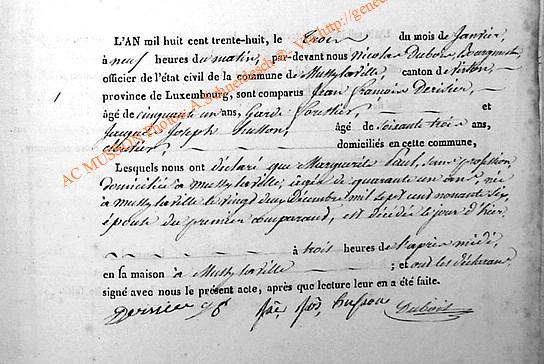 L'AN mil huit cent trente-huit, le Trois du mois de Janvier,
à neuf heures du matin, par-devant nous Nicolas Dubois, Bourgmestre
officier de l'état civil de la commune de Mussy laville, canton de Virton,
province de Luxembourg, sont comparus Jean François Dersier,
âgé de cinquante un ans, Garde Forestier, et
Jacques Joseph Husson, âgé de soixante trois ans,
domiciliés en cette commune,
Lesquels nous ont déclaré que Marguerite Paul, sans profession
Domiciliée à mussy laville, âgée de quarante un ans, née
à mussy laville le vingt deux Décembre mil sept cent nonante six,
épouse du premier comparant, est décédée le jour d'hier
à trois heures de l'après midi,
en sa maison à Mussy laville ; et ont les déclarans
signé avec nous le présent acte, après que lecture leur en a été faite.
husson Dubois
AC MUSSON Photo : A.Schneider